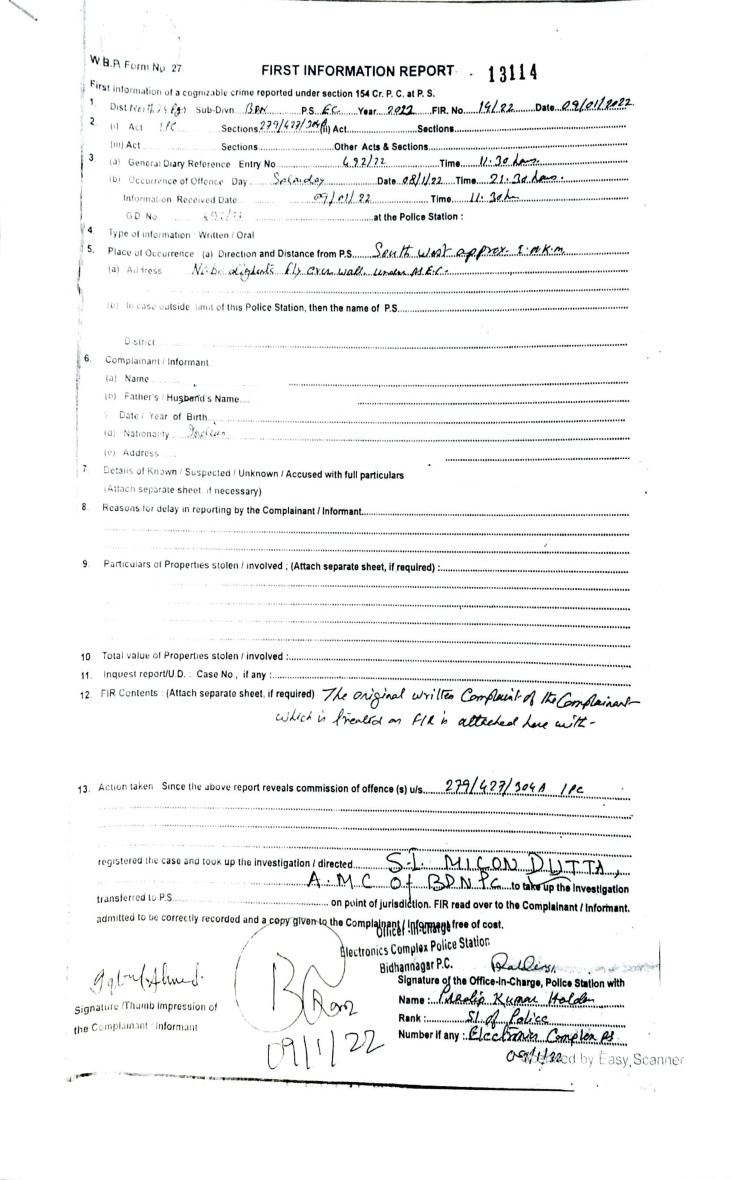 W.B.P. Form No. 27
FIRST INFORMATION REPORT 13114
First information of a cognizable crime reported under section 154 Cr. P. C. at P. S.
1. Dist North 24 Pgs Sub-Divn. BDN P.S. EC Year 2022 FIR. No. 19/22 Date 09/01/2022
2. (i) Act IPC Sections 279/427/304A (ii) Act Sections
(iii) Act Sections Other Acts & Sections
3. (a) General Diary Reference Entry No 492/22 Time 11.30 hrs.
(b) Occurrence of Offence Day Saturday Date 08/1/22 Time 21.30 hrs.
Information Received Date 09/01/22 Time 11.30 h
GD No 492/22 at the Police Station :
4. Type of information Written / Oral
5. Place of Occurrence (a) Direction and Distance from P.S. South West approx. K.m
(a) Address fly over wall under
(b) In case outside limit of this Police Station, then the name of P.S.
District
6. Complainant / Informant
(a) Name
(b) Father's / Husband's Name
Date / Year of Birth
(d) Nationality Indian
(e) Address
7. Details of Known / Suspected / Unknown / Accused with full particulars
(Attach separate sheet, if necessary)
8. Reasons for delay in reporting by the Complainant / Informant
9. Particulars of Properties stolen / involved ; (Attach separate sheet, if required) :
10. Total value of Properties stolen / involved :
11. Inquest report/U.D. : Case No., if any :
12. FIR Contents : (Attach separate sheet, if required) The original written Complaint of the Complainant
which is treated as FIR is attached here with -
13. Action taken Since the above report reveals commission of offence (s) u/s. 279/427/304A IPC
registered the case and took up the investigation / directed S.I. MIGON DUTTA,
A.M.C of BDN P.C. to take up the Investigation
transferred to P.S. on point of jurisdiction. FIR read over to the Complainant / Informant.
admitted to be correctly recorded and a copy given to the Complainant / Informant free of cost.
Officer-in-Charge
Electronics Complex Police Station
Bidhannagar P.C.
Signature of the Office-in-Charge, Police Station with
Name : Pradip Kumar Halder
Rank : SI of Police
Number if any : Electronics Complex PS
09/1/22
Signature /Thumb Impression of
the Complainant / Informant
09/1/22
by Easy Scanner